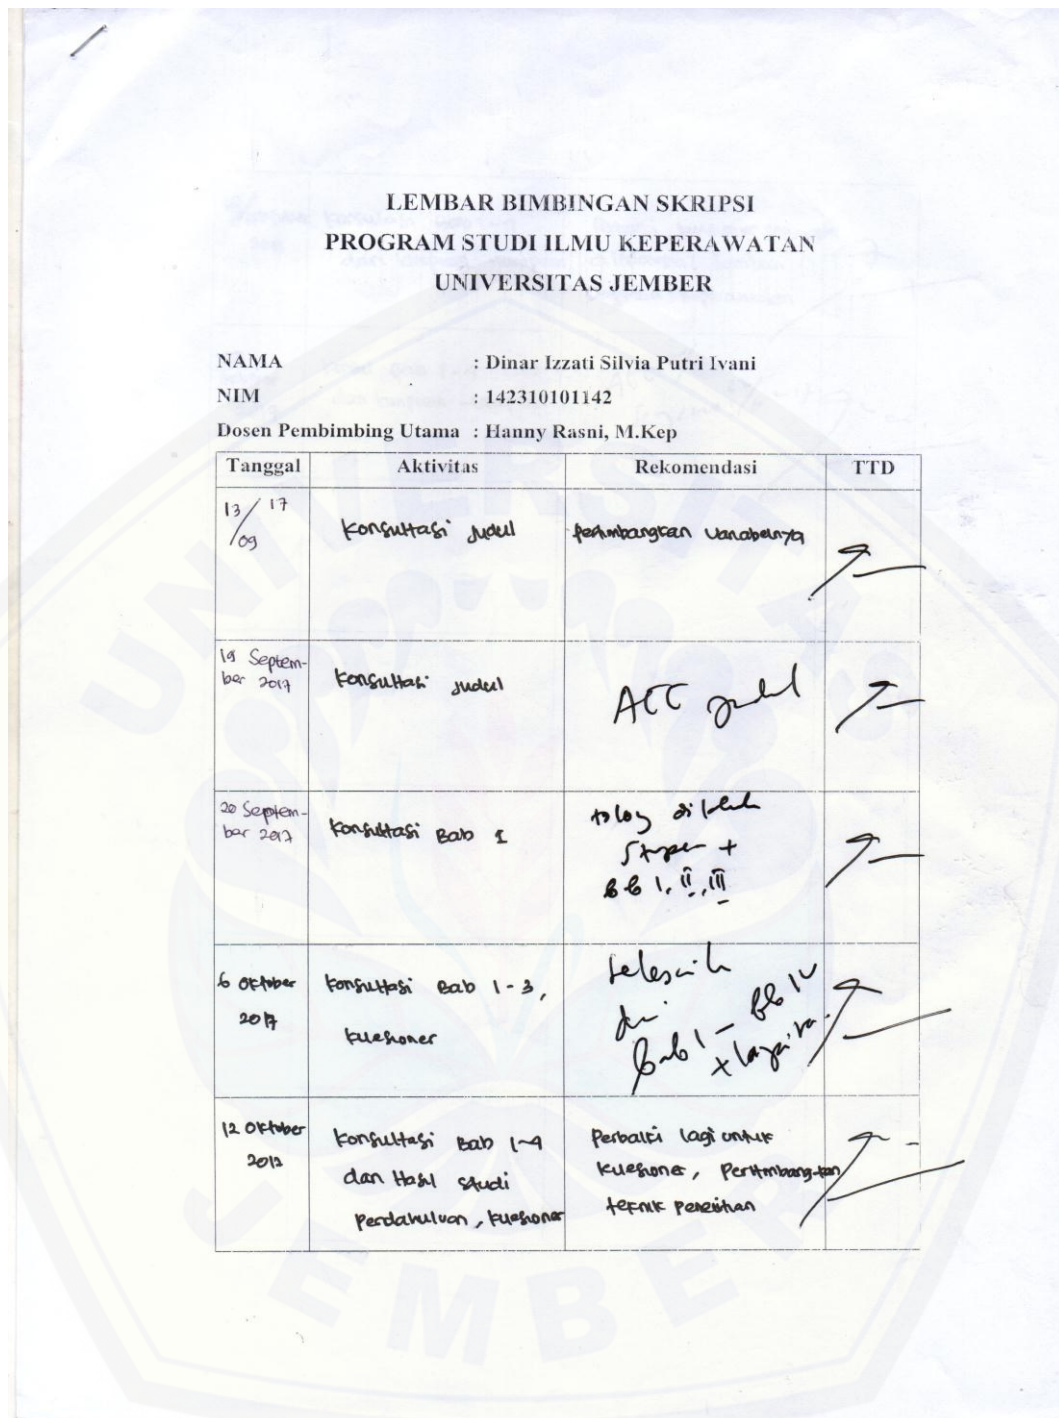 LEMBAR BIMBINGAN SKRIPSI
PROGRAM STUDI ILMU KEPERAWATAN
UNIVERSITAS JEMBER
NAMA : Dinar Izzati Silvia Putri Ivani
NIM : 142310101142
Dosen Pembimbing Utama : Hanny Rasni, M.Kep
Tanggal Aktivitas Rekomendasi TTD
13/09 17
Konsultasi Judul
Pertimbangkan Variabelnya
19 Septem-
ber 2017
Konsultasi Judul
ACC judul
20 Septem-
ber 2017
Konsultasi Bab 1
+
I, II, III
6 Oktober
2017
Konsultasi Bab 1-3,
Kuesioner
Bab 1 -
12 Oktober
2017
Konsultasi Bab 1-4
dan Hasil Studi
Pendahuluan, Kuesioner
Perbaiki lagi untuk
Kuesioner, Pertimbangkan
teknik Penelitian
UNIVERSITAS
JEMBER